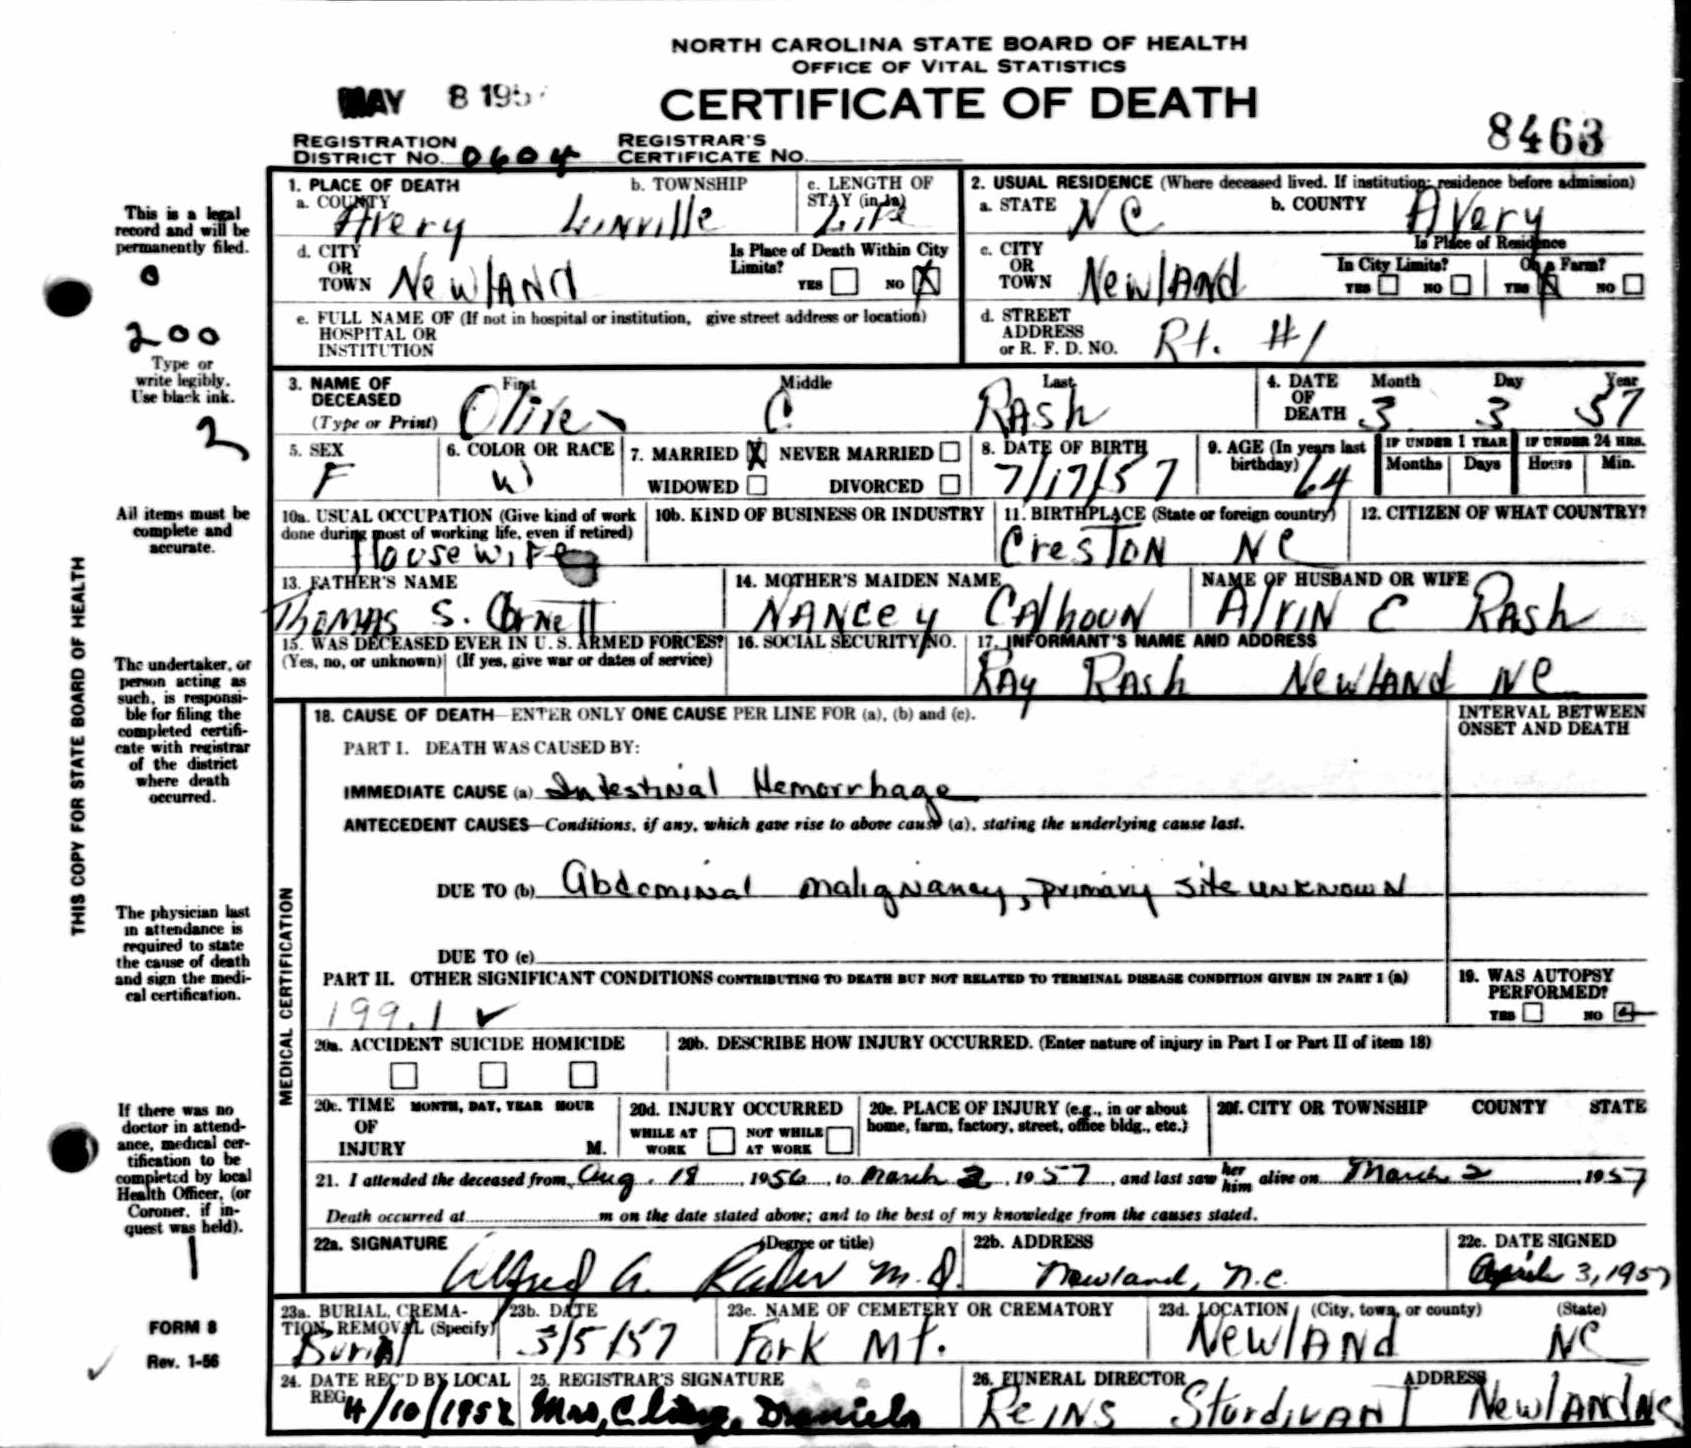 NORTH CAROLINA STATE BOARD OF HEALTH
OFFICE OF VITAL STATISTICS
MAY 8 195
CERTIFICATE OF DEATH
8463
REGISTRATION DISTRICT NO. 0604 REGISTRAR'S CERTIFICATE NO.
This is a legal record and will be permanently filed.
0
200
Type or write legibly. Use black ink.
2
All items must be complete and accurate.
THIS COPY FOR STATE BOARD OF HEALTH
The undertaker, or person acting as such, is responsible for filing the completed certificate with registrar of the district where death occurred.
The physician last in attendance is required to state the cause of death and sign the medical certification.
If there was no doctor in attendance, medical certification to be completed by local Health Officer, (or Coroner, if inquest was held).
1
FORM 8
Rev. 1-56
1. PLACE OF DEATH
a. COUNTY Avery b. TOWNSHIP Linville c. LENGTH OF STAY (in 1a) Life
2. USUAL RESIDENCE (Where deceased lived. If institution: residence before admission)
a. STATE NC b. COUNTY Avery
d. CITY OR TOWN Newland Is Place of Death Within City Limits? YES NO X
c. CITY OR TOWN Newland Is Place of Residence In City Limits? YES NO On a Farm? YES X NO
e. FULL NAME OF (If not in hospital or institution, give street address or location) HOSPITAL OR INSTITUTION
d. STREET ADDRESS or R. F. D. NO. Rt. #1
3. NAME OF DECEASED (Type or Print) First Middle C. Last Rash
4. DATE OF DEATH Month 3 Day 3 Year 57
5. SEX F
6. COLOR OR RACE W
7. MARRIED X NEVER MARRIED WIDOWED DIVORCED
8. DATE OF BIRTH 7/17/57
9. AGE (In years last birthday) 64 IF UNDER 1 YEAR Months Days IF UNDER 24 HRS. Hours Min.
10a. USUAL OCCUPATION (Give kind of work done during most of working life, even if retired) Housewife
10b. KIND OF BUSINESS OR INDUSTRY
11. BIRTHPLACE (State or foreign country) Creston NC
12. CITIZEN OF WHAT COUNTRY?
13. FATHER'S NAME Thomas S. Cornett
14. MOTHER'S MAIDEN NAME Nancey Calhoun
NAME OF HUSBAND OR WIFE Alvin C Rash
15. WAS DECEASED EVER IN U. S. ARMED FORCES? (Yes, no, or unknown) (If yes, give war or dates of service)
16. SOCIAL SECURITY NO.
17. INFORMANT'S NAME AND ADDRESS Ray Rash Newland NC
MEDICAL CERTIFICATION
18. CAUSE OF DEATH—ENTER ONLY ONE CAUSE PER LINE FOR (a), (b) and (c).
INTERVAL BETWEEN ONSET AND DEATH
PART I. DEATH WAS CAUSED BY:
IMMEDIATE CAUSE (a) Intestinal Hemorrhage
ANTECEDENT CAUSES—Conditions, if any, which gave rise to above cause (a), stating the underlying cause last.
DUE TO (b) Abdominal malignancy, primary site unknown
DUE TO (c)
PART II. OTHER SIGNIFICANT CONDITIONS CONTRIBUTING TO DEATH BUT NOT RELATED TO TERMINAL DISEASE CONDITION GIVEN IN PART I (a)
199.1 ✓
19. WAS AUTOPSY PERFORMED? YES NO
20a. ACCIDENT SUICIDE HOMICIDE
20b. DESCRIBE HOW INJURY OCCURRED. (Enter nature of injury in Part I or Part II of item 18)
20c. TIME OF INJURY MONTH, DAY, YEAR HOUR M.
20d. INJURY OCCURRED WHILE AT WORK NOT WHILE AT WORK
20e. PLACE OF INJURY (e.g., in or about home, farm, factory, street, office bldg., etc.)
20f. CITY OR TOWNSHIP COUNTY STATE
21. I attended the deceased from Aug. 18, 1956, to March 2, 1957, and last saw her him alive on March 2 1957
Death occurred at m on the date stated above; and to the best of my knowledge from the causes stated.
22a. SIGNATURE (Degree or title) Alfred A. M.D.
22b. ADDRESS Newland, N.C.
22c. DATE SIGNED April 3, 1957
23a. BURIAL, CREMATION, REMOVAL (Specify) Burial
23b. DATE 3/5/57
23c. NAME OF CEMETERY OR CREMATORY Fork Mt.
23d. LOCATION (City, town, or county) (State) Newland NC
24. DATE REC'D BY LOCAL REG. 4/10/195
25. REGISTRAR'S SIGNATURE Mrs, Daniels
26. FUNERAL DIRECTOR ADDRESS Reins Sturdivant Newland NC